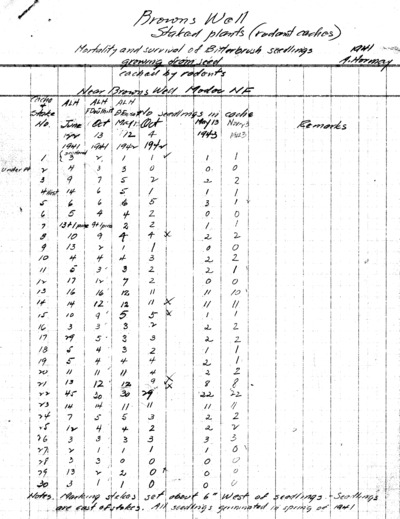 Browns Well
Staked plants (rodent caches)
Mortality and survival of Bitterbrush seedlings 1941
growing from seed A. Hormay
cached by rodents
Near Browns Well Modoc NF
Cache ALH ALH ALH
& FD
Stake No seedlings in cache
No. June Oct May Oct May 13 Nov 3 Remarks
12 13 12 4 1943 1943
1941 1941 1942 1942
1 3 2 1 1 ✓ 1 1
2 4 3 3 0 0 0
3 9 7 5 2 2 2
4 14 6 5 1 1 1
5 6 6 6 5 3 1
6 5 4 4 2 0 0
7 13+1 9+1 2 2 1 1
8 10 9 4 4 x 2 2
9 13 2 1 1 0 0
10 4 4 4 3 2 2
11 5 3 3 2 2 1
12 17 12 7 2 0 0
13 16 16 12 11 11 10
14 14 12 12 11 x 11 11
15 10 9 5 5 x 1 1
16 3 3 3 2 2 2
17 29 5 3 3 2 2
18 5 4 3 2 1 1
19 5 4 4 4 2 1
20 11 11 11 4 2 2
21 13 12 12 9 x 8 8
22 45 30 30 29 x 22 22
23 14 14 11 11 11 11
24 7 5 5 3 2 2
25 12 4 4 2 2 2
26 3 3 3 3 3 3
27 2 1 1 1 1 0
28 3 3 0 0 0 0
29 13 2 2 0 0 0
30 3 1 1 0 0 0
Notes. Marking stakes set about 6" West of seedlings - Seedlings
are east of stakes. All seedlings germinated in spring of 1941